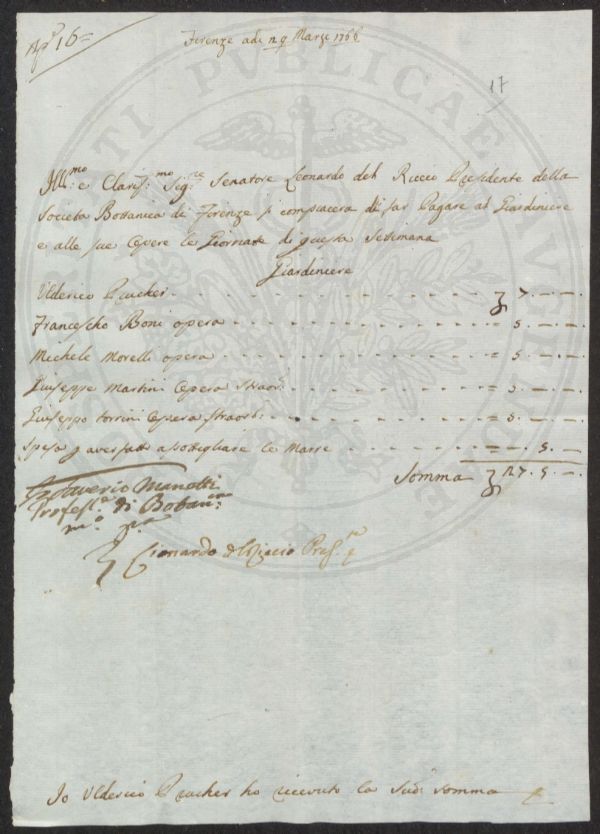 16=
Firenze adi 29 Marzo 1766
17
Ill:mo e Claris:mo Sig:re Senatore Leonardo del Riccio Presidente della
Società Bottanica di Firenze si compiacera di far Pagare al Giardiniere
e alle sue Opere le Giornate di questa Settimana
Giardiniere
Ulderico Prucher - - - 7. — . — .
Francescho Boni opera - - - = 5. — . — .
Michele Morelli opera - - - = 5. — . — .
Giuseppe Martini Opera Straor: - - - = 5. — . — .
Giuseppe torrini Opera straor: - - - = 5. — . — .
Spesa p aver fatto assottigliare le Marre - - - = — . 5. — .
Somma 27. 5. — .
Saverio Manetti
Profess:e di Botan:ca
m:o p:a
Lionardo del Riccio Pres:te
Io Ulderico Prucher ho ricevuto la Sud: Somma
CERTI PVBLICAE AVGENDAE